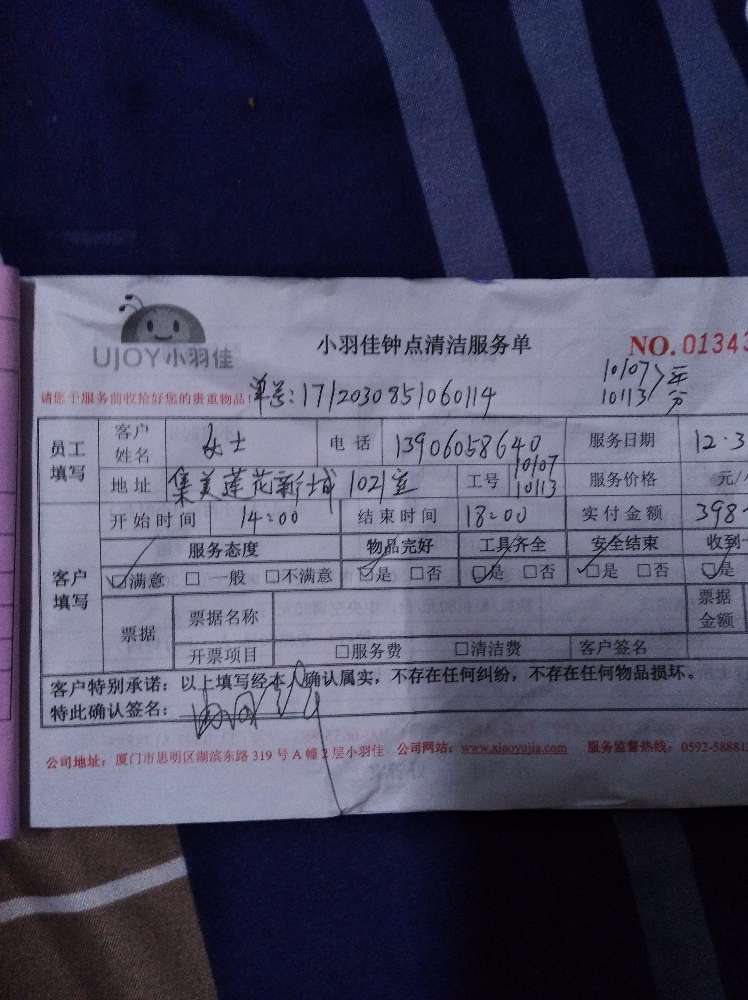 UJOY小羽佳
小羽佳钟点清洁服务单
NO.01343
请您于服务前收拾好您的贵重物品!
单号:1712030851060114
10107
10113
平分
员工填写
客户姓名 女士 电话 13906058640 服务日期 12.3
地址 集美莲花新城1021室 工号 10107 10113 服务价格 元/
客户填写
开始时间 14:00 结束时间 18:00 实付金额 398
服务态度 物品完好 工具齐全 安全结束 收到
☑满意 □一般 □不满意 ☑是 □否 ☑是 □否 ☑是 □否 ☑是
票据 票据名称 票据金额
开票项目 □服务费 □清洁费 客户签名
客户特别承诺:以上填写经本人确认属实,不存在任何纠纷,不存在任何物品损坏。
特此确认签名:
公司地址:厦门市思明区湖滨东路319号A幢2层小羽佳 公司网站:www.xiaoyujia.com 服务监督热线:0592-58881